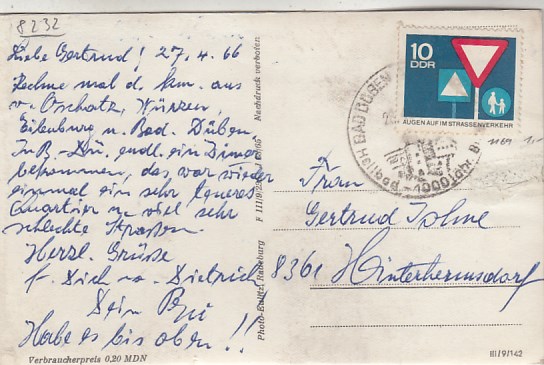 8232
Liebe Gertrud! 27.4.66
Rechne mal d. km. aus
v. Oschatz, Wurzen,
Eilenburg u. Bad. Düben.
In B. Dü. endl. ein Zimmer
bekommen, das war wieder
einmal ein sehr teueres
Quartier u. viel sehr
schlechte Strassen.
Herzl. Grüsse
f. Dich u. Dietrich
Dein
Habe es bis oben!!
Verbraucherpreis 0,20 MDN
Nachdruck verboten
F III/9/25
Photo-Eulitz, Radeburg
10
DDR
AUGEN AUF IM STRASSENVERKEHR
BAD DÜBEN
Heilbad 1000 jähr.
Frau
Gertrud
8361 Hinterhermsdorf
III/9/142